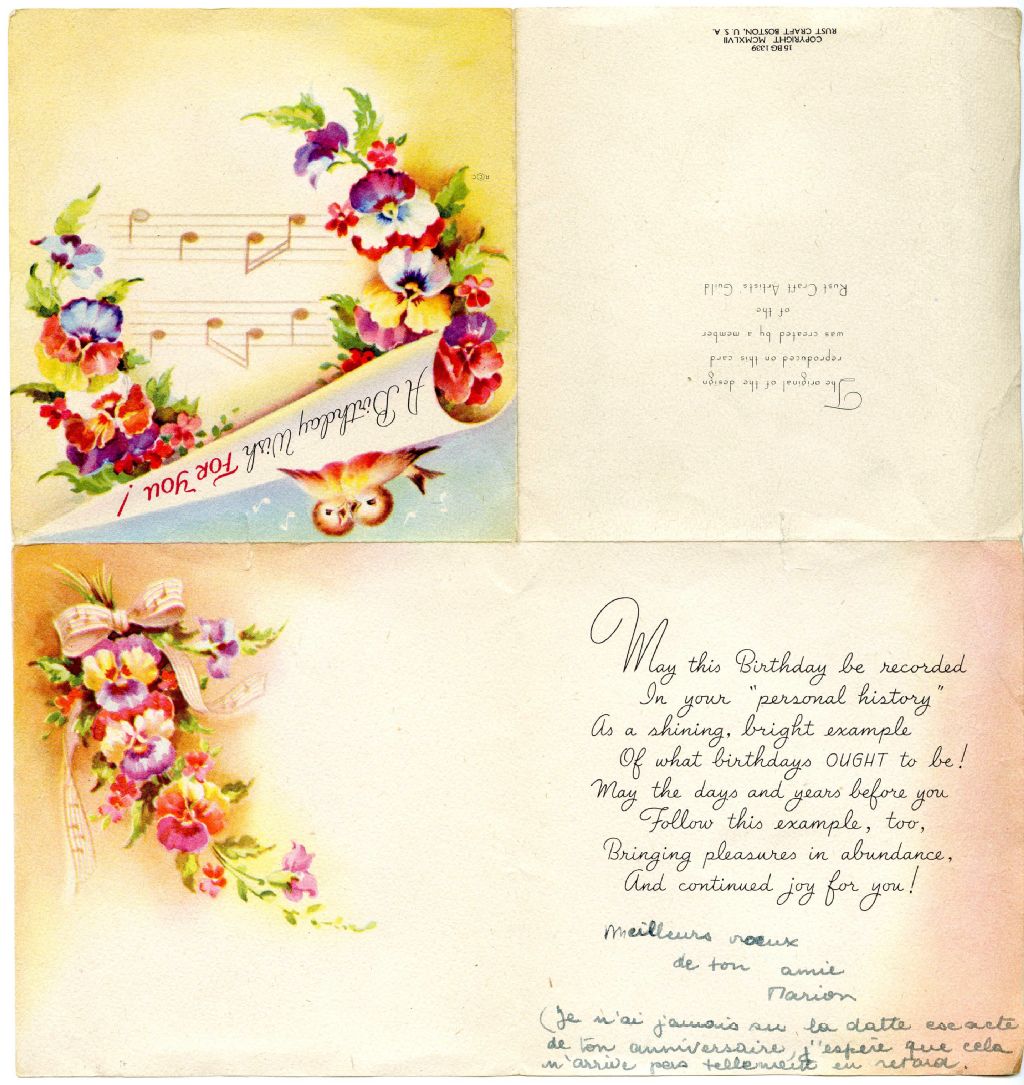 A Birthday Wish FOR YOU!
R©C
15BG 1339
COPYRIGHT MCMXLVII
RUST CRAFT BOSTON, U. S. A.
The original of the design
reproduced on this card
was created by a member
of the
Rust Craft Artists' Guild
May this Birthday be recorded
In your "personal history"
As a shining, bright example
Of what birthdays OUGHT to be!
May the days and years before you
Follow this example, too,
Bringing pleasures in abundance,
And continued joy for you!
Meilleurs voeux
de ton amie
Marion
(Je n'ai jamais su la datte excacte
de ton anniversaire, j'espère que cela
n'arrive pas tellement en retard.